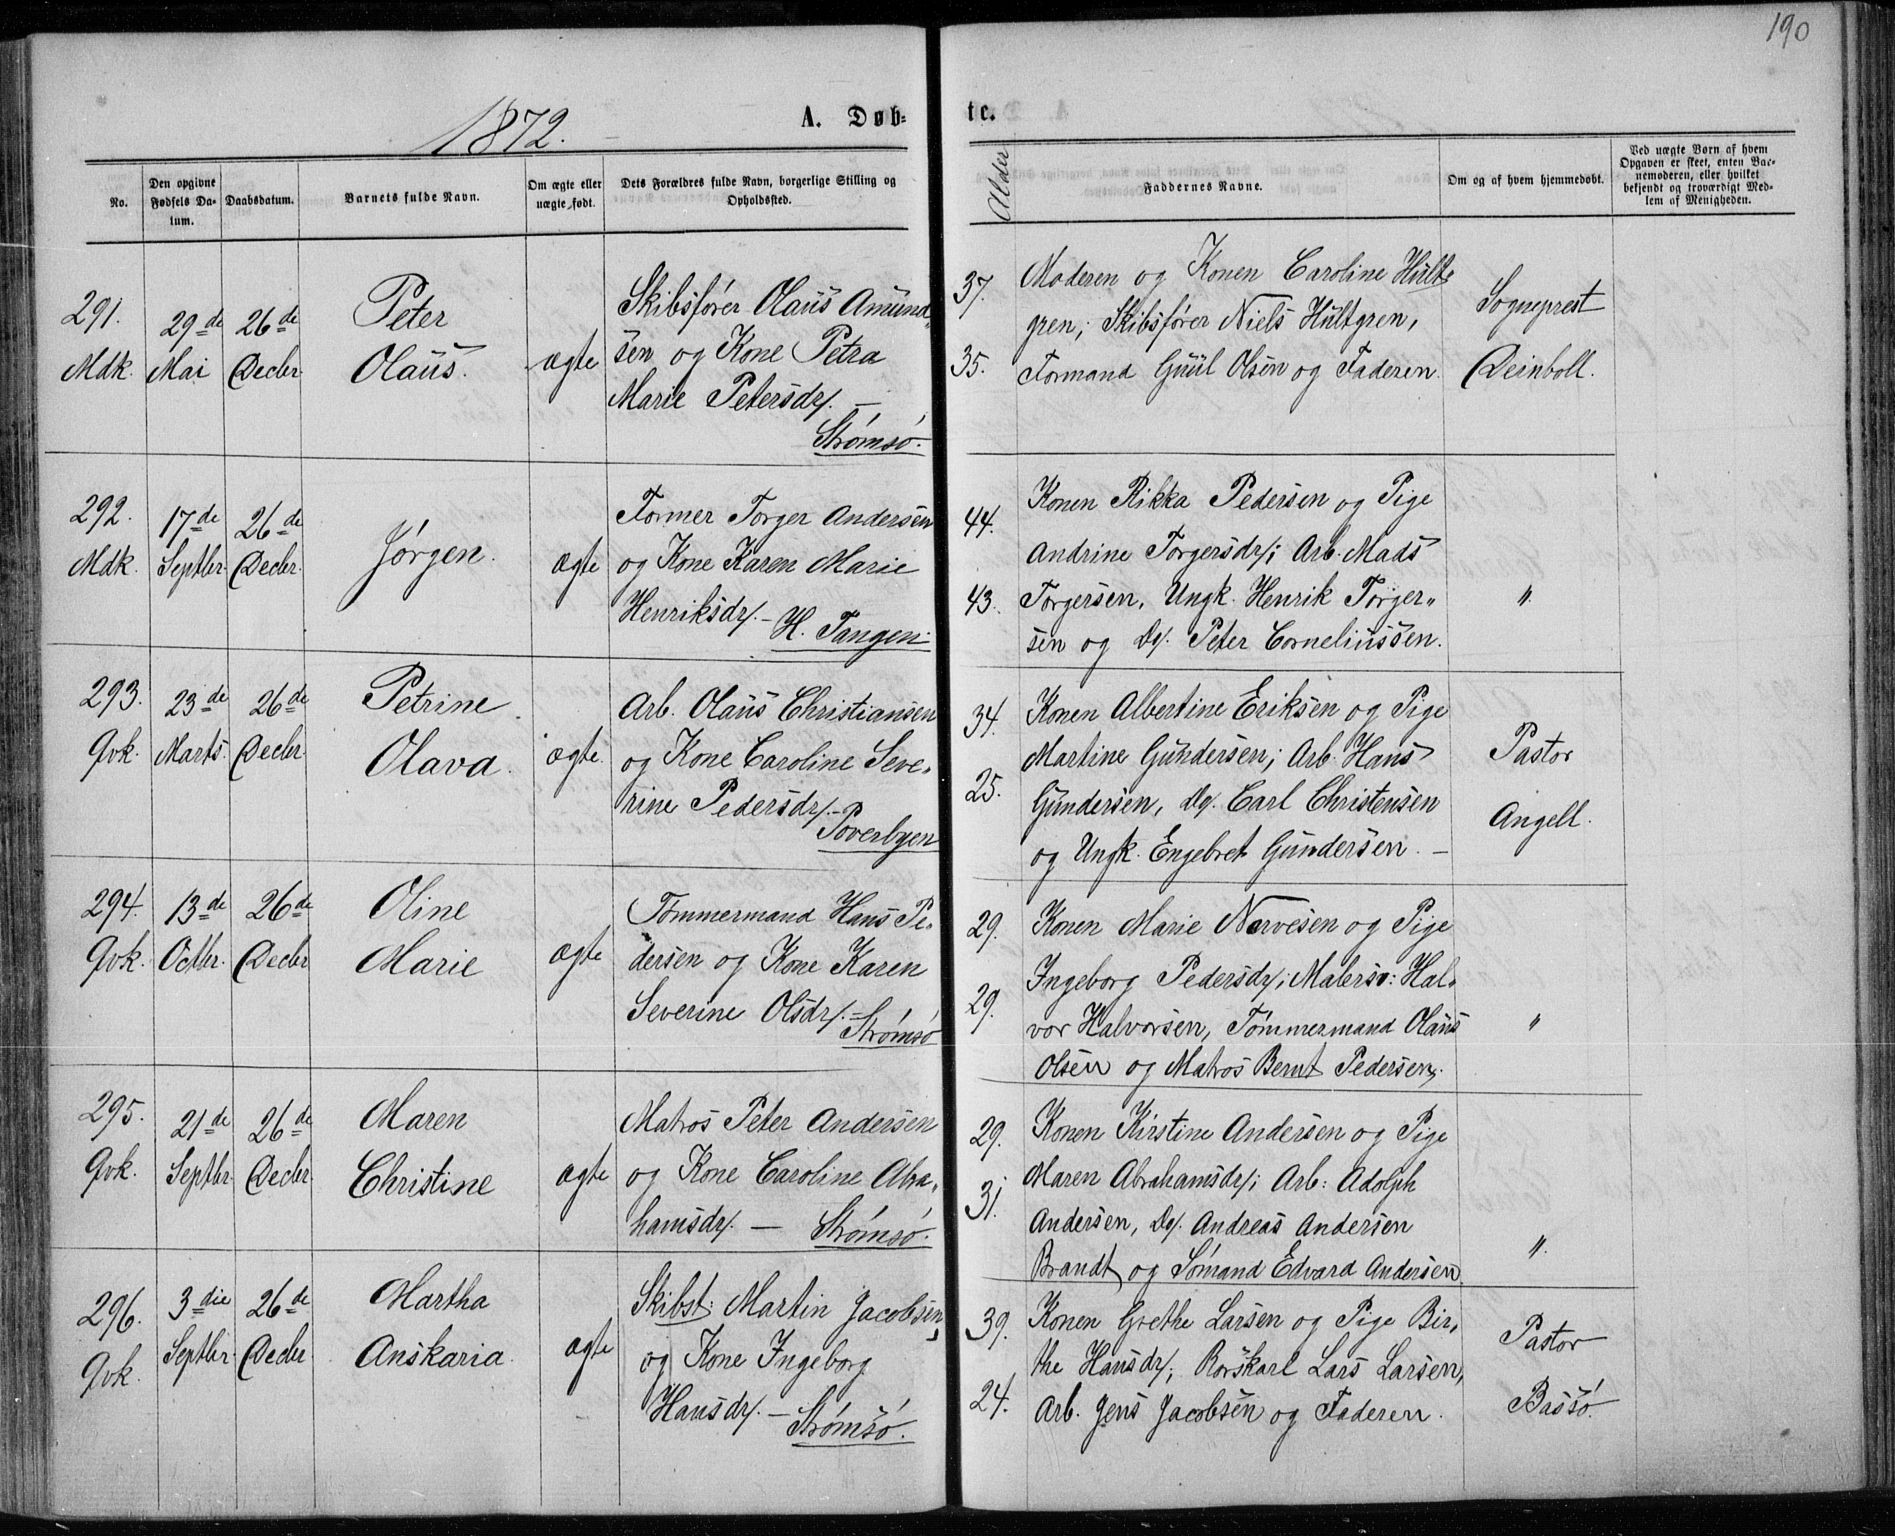 190
1872.
A. Døb-
te.
No.
Den opgivne Fødsels Da-
tum.
Daabsdatum.
Barnets fulde Navn.
Om ægte eller
uægte født.
Dets Forældres fulde Navn, borgerlige Stilling og
Opholdssted.
Alder
Faddernes Navne.
Om og af hvem hjemmedøbt.
Ved uægte Børn af hvem
Opgaven er skeet, enten Bar-
nemoderen, eller hvilket
bekjendt og troværdigt Med-
lem af Menigheden.
291.
Mdk.
29de
Mai
26de
Decbr.
Peter
Olaus.
ægte
Skibsfører Olaus Amund-
sen og Kone Petra
Marie Petersdr. —
Strømsø.
37.
35.
Moderen og Konen Caroline Hult-
gren, Skibsfører Niels Hultgren,
Formand Guul Olsen og Faderen.
Sogneprest
Deinboll.
292.
Mdk.
17de
Septbr.
26de
Decbr.
Jørgen.
ægte
Former Torger Andersen
og Kone Karen Marie
Henriksdr. – H. Tangen.
44.
43.
Konen Rikka Pedersen og Pige
Andrine Torgersdr; Arb. Mads
Torgersen, Ungk. Henrik Torger-
sen og Do. Peter Corneliussen.
"
293.
Qvk.
23de
Marts.
26de
Decbr.
Petrine
Olava.
ægte.
Arb. Olaus Christiansen
og Kone Caroline Seve-
rine Pedersdr. –
Poverbyen
34.
25.
Konen Albertine Eriksen og Pige
Martine Gundersen; Arb. Hans
Gundersen, Do. Carl Christensen
og Ungk. Engebret Gundersen. —
Pastor
Angell.
294.
Qvk.
13de
Octbr.
26de
Decbr
Oline
Marie
ægte
Tømmermand Hans Pe-
dersen og Kone Karen
Severine Olsdr. –
Strømsø
29.
29.
Konen Marie Narvesen og Pige
Ingeborg Pedersdr; Malersv: Hal-
vor Halvorsen, Tømmermand Olaus
Olsen og Matros Bernt Pedersen.
"
295.
Qvk.
21de
Septbr.
26de
Decbr.
Maren
Christine
ægte
Matros Peter Andersen
og Kone Caroline Abra-
hamsdr. — Strømsø.
29.
31.
Konen Kirstine Andersen og Pige
Maren Abrahamsdr; Arb: Adolph
Andersen, Do. Andreas Andersen
Brandt og Sømand Edvard Andersen.
"
296.
Qvk.
3die
Septbr.
26de
Decbr
Martha
Anskaria.
ægte
Skibst: Martin Jacobsen
og Kone Ingeborg
Hansdr. – Strømsø.
39.
24.
Konen Grethe Larsen og Pige Bir-
the Hansdr; Rorskarl Lars Larsen,
Arb. Jens Jacobsen og Faderen.
Pastor
Bassø.